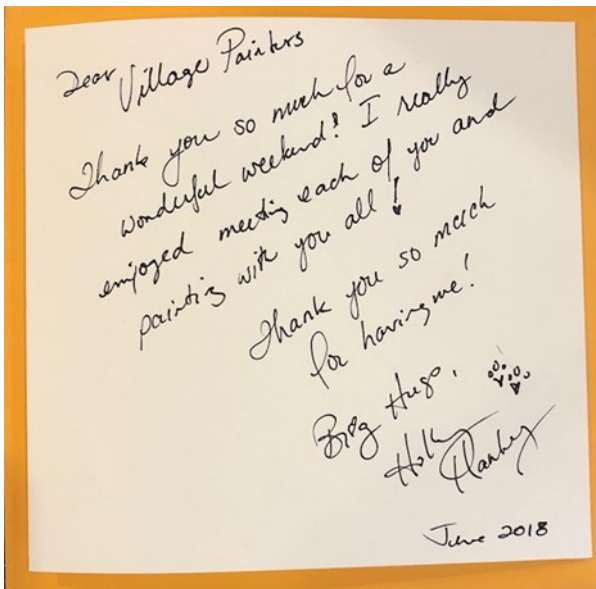 Dear Village Painters
Thank you so much for a
wonderful weekend! I really
enjoyed meeting each of you and
painting with you all!
Thank you so much
for having me!
Big Hugs,
Holly
June 2018